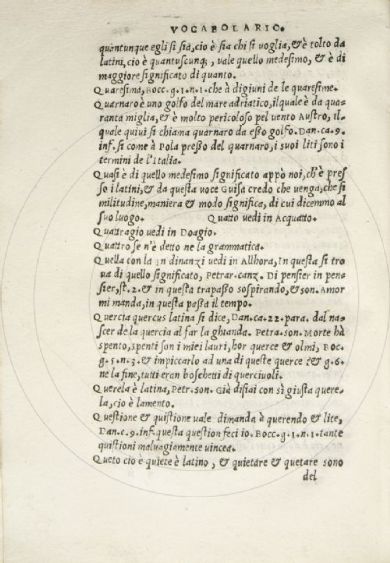 VOCABOLARIO.
quantunque egli si sia, cio è sia chi si voglia, & è tolto da
latini, cio è quantuscunq;, vale quello medesimo, & è di
maggiore significato di quanto.
Quaresima, Bocc. g. 1. n. 1. che à digiuni de le quaresime.
Quarnaro è uno golfo del mare adriatico, ilquale è da qua-
ranta miglia, & è molto pericoloso pel vento Austro, il
quale quiui si chiama quarnaro da esso golfo. Dan. ca. 9.
inf. si come à Pola presso del quarnaro, i suoi liti sono i
termini de l'Italia.
Quasi è di quello medesimo significato appò noi, ch'è pres
se i latini, & da questa voce Guisa credo che uenga, che si
militudine, maniera & modo significa, di cui dicemmo al
suo luogo. Quatto vedi in Acquatto.
Quattragio vedi in Doagio.
Quattro se n'è detto ne la grammatica.
Quella con la in dinanzi vedi in Allhora, In questa si tro
va di quello significato, Petrar. canz. Di pensier in pen=
sier, st. 2. & in questa trapasso sospirando, & son. Amor
mi manda, in questa passa il tempo.
Quercia quercus latina si dice, Dan. ca. 22. para. dal na=
scer de la quercia al far la ghianda. Petra. son. Morte hà
spento, spenti son i miei lauri, hor querce & olmi, Boc.
g. 5. n. 3. & impiccarlo ad una di queste querce : & g. 6.
ne la fine, tutti eran boschetti di querciuoli.
Querela è latina, Petr. son. Già disiai con sì giusta quere=
la, cio è lamento.
Questione & quistione uale dimanda è querendo & lite,
Dan. c. 9. inf. questa question feci io. Bocc. g. 1. n. 1. tante
quistioni maluagiamente vincea.
Queto cio è quiete è latino, & quietare & quetare sono
del